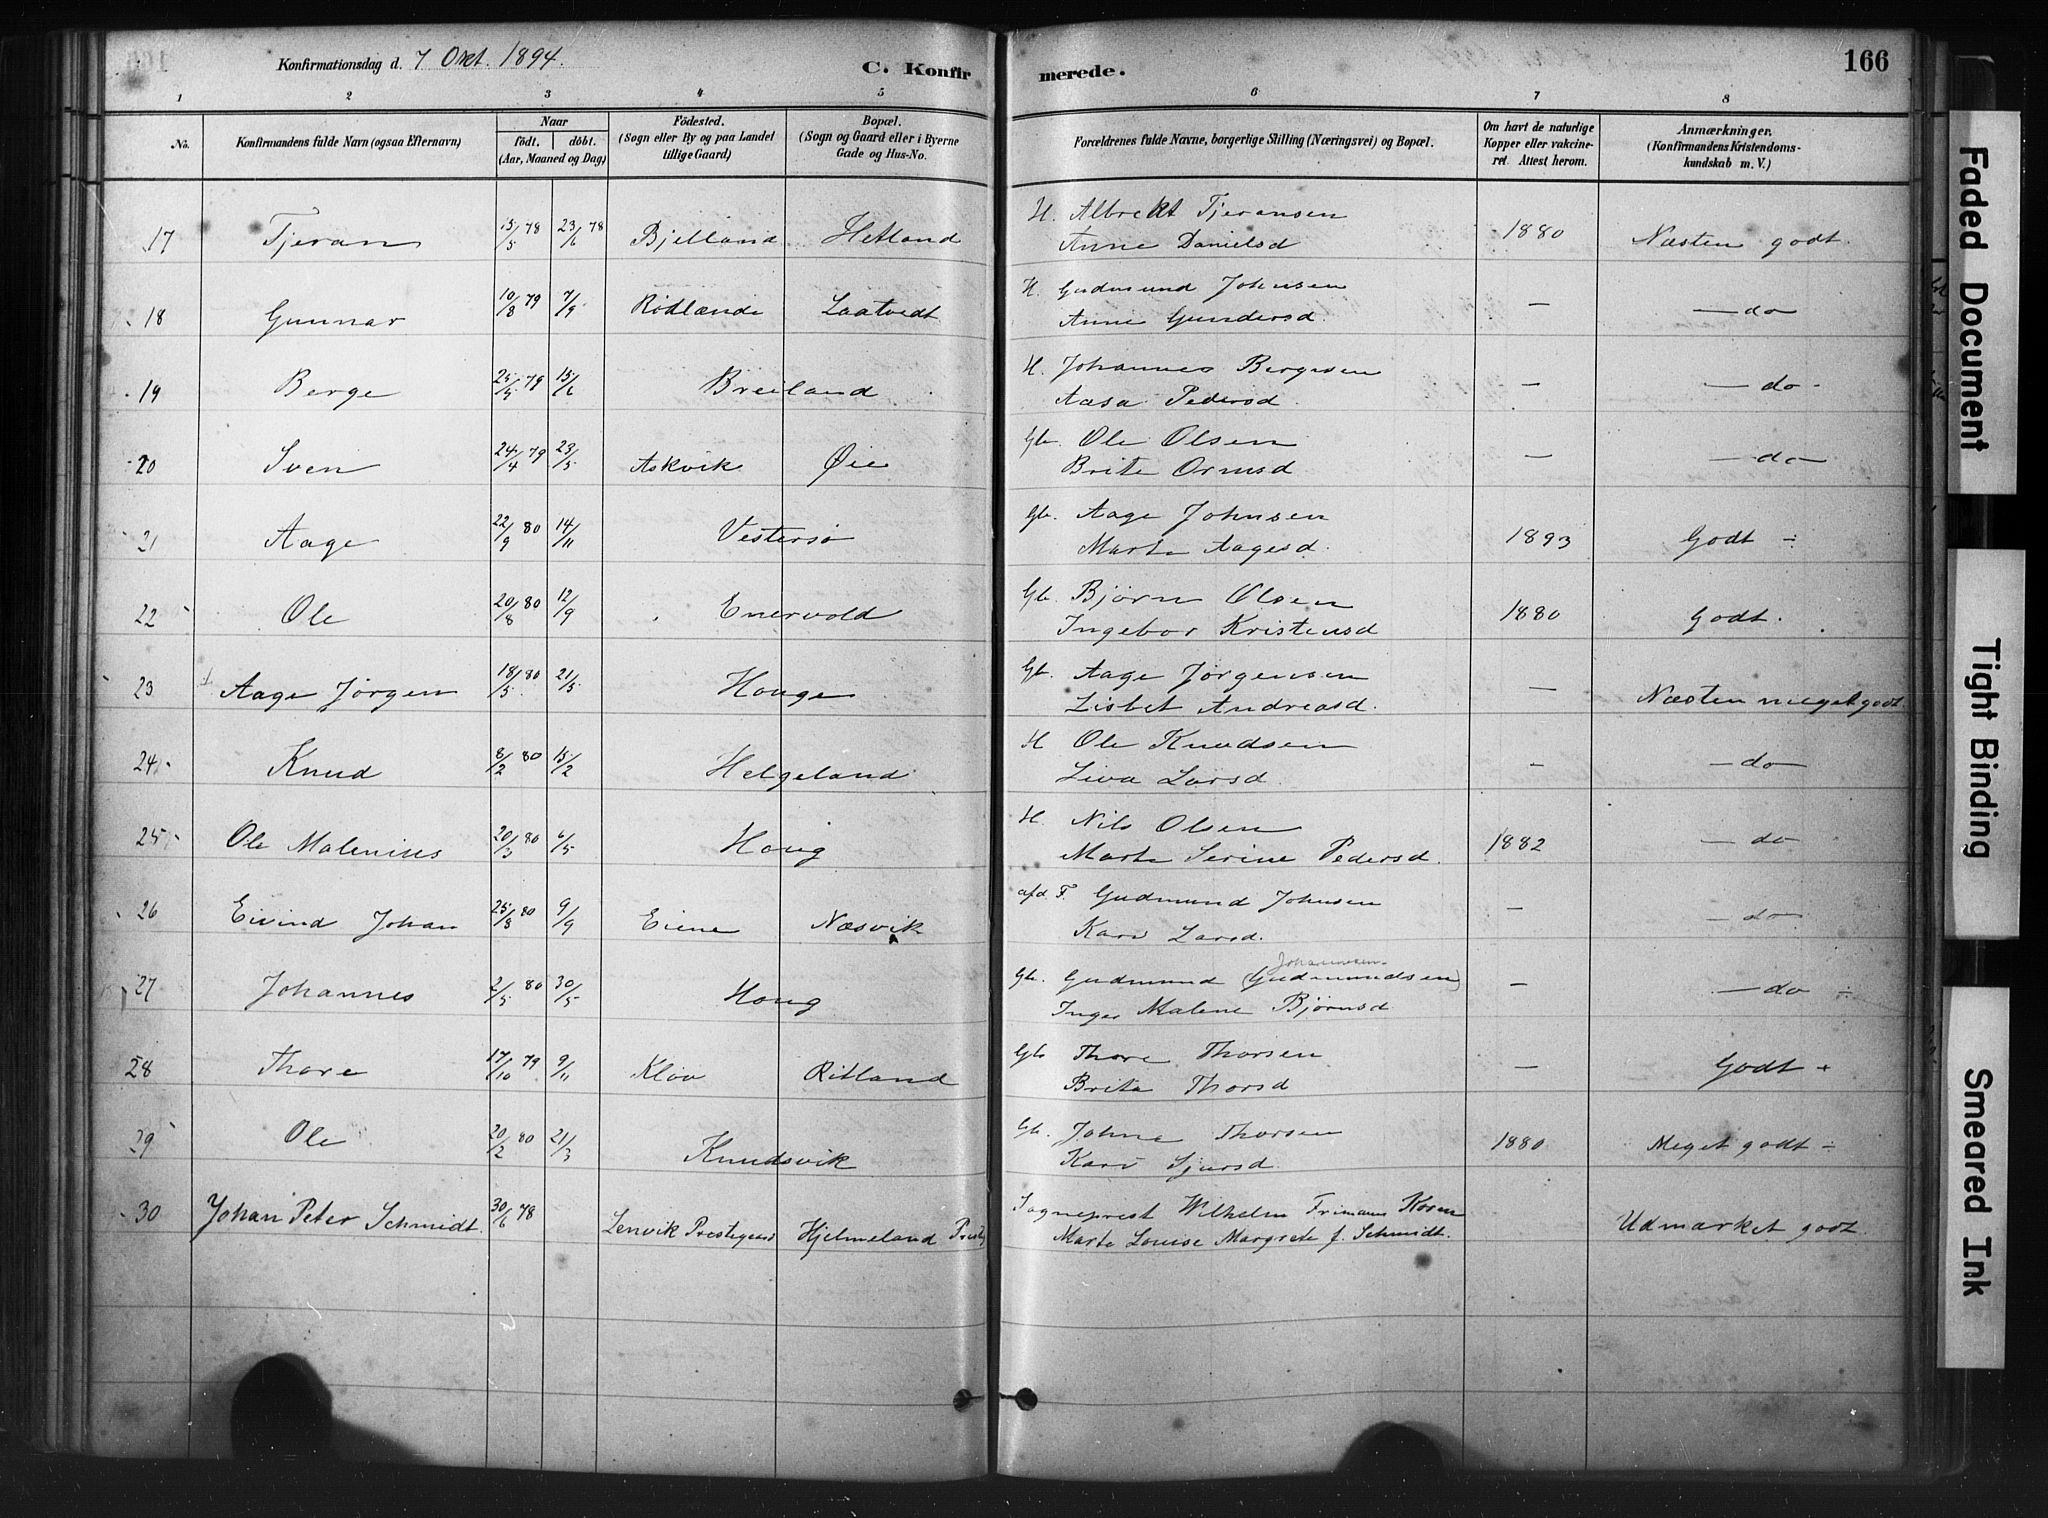 Konfirmationsdag d. 7 Okt. 1894.
C. Konfirmerede.
166
1 2 3 4 5 6 7 8
No.
Konfirmandens fulde Navn (ogsaa Efternavn)
Naar
födt. döbt.
(Aar, Maaned og Dag)
Födested.
(Sogn eller By og paa Landet
tillige Gaard)
Bopæl.
(Sogn og Gaard eller i Byerne
Gade og Hus-No.
Forældrenes fulde Navne, borgerlige Stilling (Næringsvei) og Bopæl.
Om havt de naturlige
Kopper eller vakcine-
ret. Attest herom.
Anmærkninger.
(Konfirmandens Kristendoms-
kundskab m. V.)
17 Tjeran 15/5 78 23/6 78 Bjelland Hetland H. Albrekt Tjeransen 1880 Næsten godt.
Anne Danielsd
18 Gunnar 10/8 79 7/9 Laatvedt H. Gudmund Johnsen — — do
Anne Gundersd.
19 Berge 25/5 79 15/6 Breiland H. Johannes Bergesen — — do -
Aasa Pedersd.
20 Sven 24/4 79 23/5 Askvik Øie Gb. Ole Olsen — — do —
Brite Ormsd.
21 Aage 22/9 80 14/11 Vestersø Gb. Aage Johnsen 1893 Godt ÷
Marta Aagesd.
22 Ole 20/8 80 12/9 Enervold Gb. Bjørn Olsen 1880 Godt.
Ingebor Kristensd
23 Aage Jörgen 18/5 80 21/5 Houge Gb. Aage Jørgensen — Næsten meget godt.
Lisbet Andreasd.
24 Knud 8/2 80 15/2 Helgeland H Ole Knudsen - — do
Liva Larsd.
25 Ole Malenius 20/3 80 6/5 Houg H. Nils Olsen 1882 — do
Marta Serine Pedersd.
26 Eivind Johan 25/8 80 9/9 Eiene Næsvik afd. F. Gudmund Johnsen — — do
Kari Larsd.
27 Johannes 2/5 80 30/5 Houg Gb. Gudmund (Gudmundsen) — — do ÷
Johannesen
Inger Malene Bjørnsd
28 Thore 17/10 79 9/11 Kløv Ritland Gb Thore Thorsen — Godt +
Brita Thorsd
29 Ole 20/2 80 21/3 Knudsvik Gb. Johne Thorsen 1880 Meget godt ÷
Kari Sjursd.
30 Johan Peter Schmidt. 30/6 78 Lenvik Prestegaard Hjelmeland Sogneprest Wilhelm Frimann Udmærket godt.
Marta Louise Margrete f. Schmidt.
Faded Document
Tight Binding
Smeared Ink